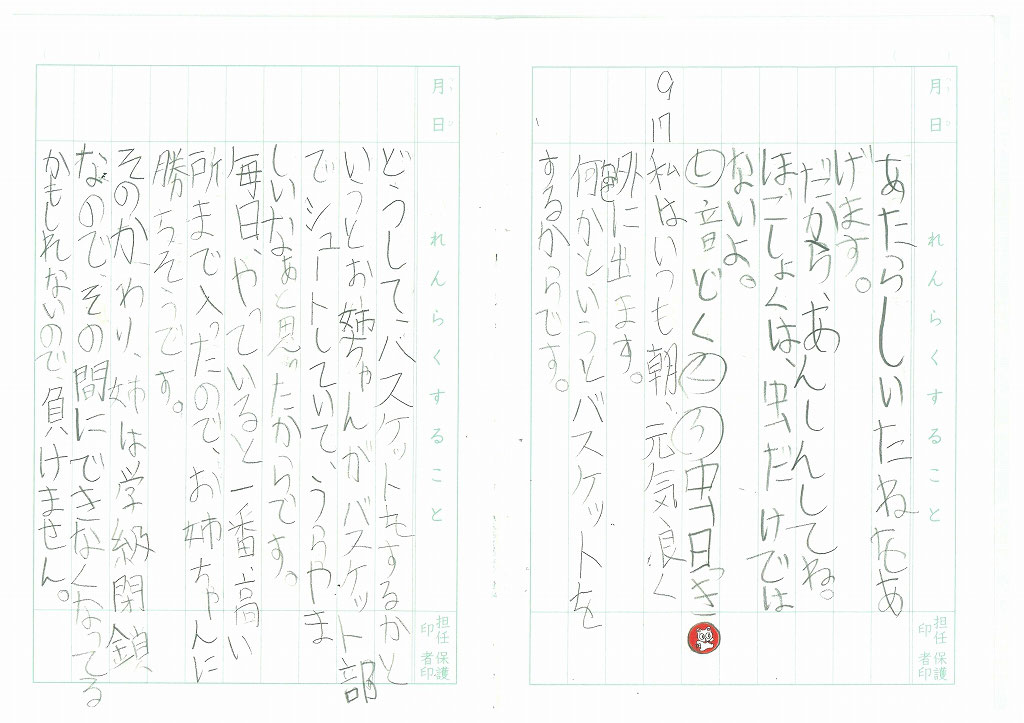 月 日
れんらくすること
担任印
保護者印
あたらしいたねをあ
げます。
だから、あんしんしてね。
ほごしょくは、虫だけでは
ないよ。
音どく
虫 日っき
9
17
私はいつも朝、元気良く
外に出ます。
何かというとバスケットを
するからです。
月 日
れんらくすること
担任印
保護者印
どうして、バスケットをするかと
いうとお姉ちゃんがバスケット部
でシュートしていて、うらやま
しいなぁと思ったからです。
毎日、やっていると一番、高い
所まで入ったので、お姉ちゃんに
勝ちそうです。
そのかわり、姉は学級閉鎖
なので、その間にできなくなってる
かもしれないので、負けません。